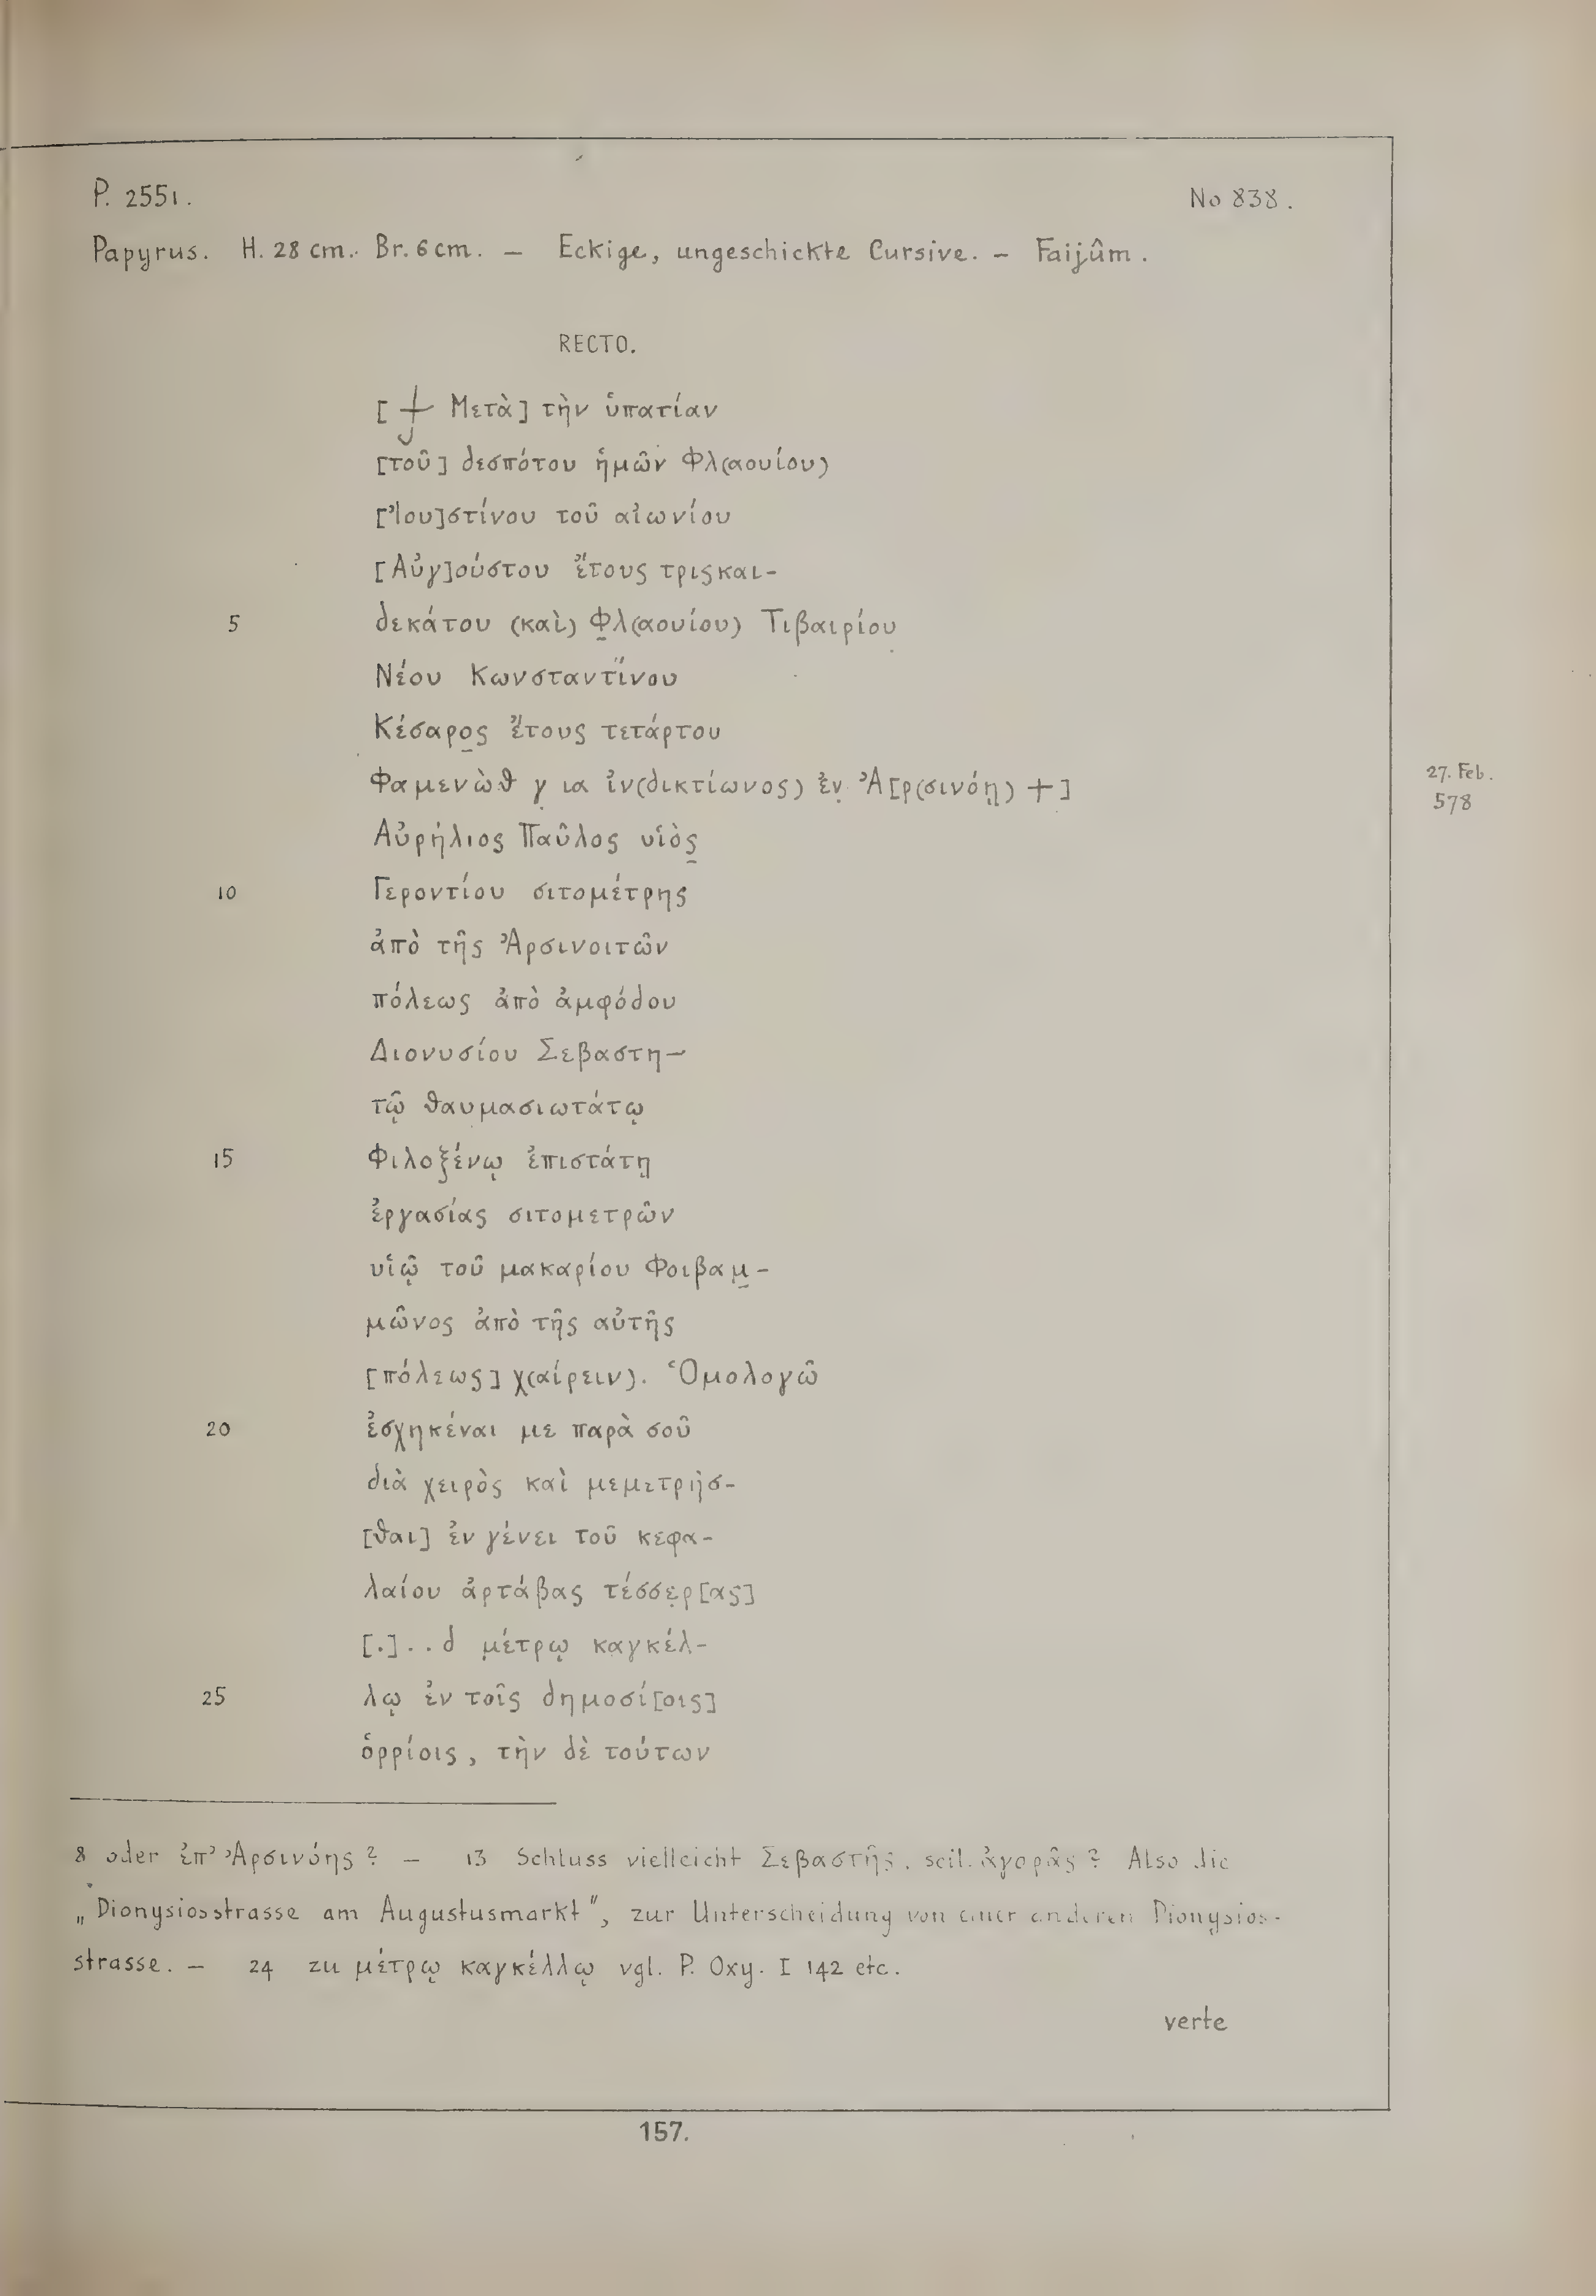 P. 2551.
No 838.
Papyrus. H. 28 cm. Br. 6 cm. — Eckige, ungeschickte Cursive. — Faijûm.
RECTO.
[ ⳨ Μετὰ] τὴν ὑπατίαν
[τοῦ] δεσπότου ἡμῶν Φλ(αουίου)
[Ἰου]στίνου τοῦ αἰωνίου
[Αὐγ]ούστου ἔτους τρισκαι-
5 δεκάτου (καὶ) Φ̣λ(αουίου) Τιβαιρίου
Νέου Κωνσταντΐνου
Κέσαρο̣ς ἔτους τετάρτου
Φαμενὼθ γ̣ ια ἰν(δικτίωνος) ἐν̣ Ἀ[ρ(σινόῃ) +]
27. Feb.
578
Αὐρήλιος Παῦλος υἱὸς̣
10 Γεροντίου σιτομέτρης
ἀπὸ τῆς Ἀρσινοιτῶν
πόλεως ἀπὸ ἀμφόδου
Διονυσίου Σεβαστη—
τῷ θαυμασιωτάτῳ
15 Φιλοξένῳ ἐπιστάτῃ
ἐργασίας σιτομετρῶν
υἱῷ τοῦ μακαρίου Φοιβαμ̣-
μῶνος ἀπὸ τῆς αὐτῆς
[πόλεως] χ(αίρειν). Ὁμολογῶ
20 ἐσχηκέναι με παρὰ σοῦ
διὰ χειρὸς καὶ μεμετρῆσ-
[θαι] ἐν γένει τοῦ κεφα-
λαίου ἀρτάβας τέσσε̣ρ[ας]
[.]..d μ̣έτρῳ καγκέλ-
25 λῳ ἐν τοῖς δημοσί[οις]
ὁρρίοις, τὴν δὲ τούτων
8 oder ἐπ' Ἀρσινόης? — 13 Schluss vielleicht Σεβαστῆς, scil. ἀγορᾶς? Also die
„Dionysiosstrasse am Augustusmarkt", zur Unterscheidung von einer anderen Dionysios-
strasse. — 24 zu μέτρῳ καγκέλλῳ vgl. P. Oxy. I 142 etc.
verte
157.